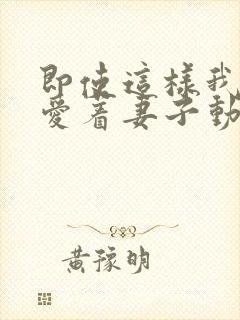 即使這樣我
愛着妻子動
黃豫明